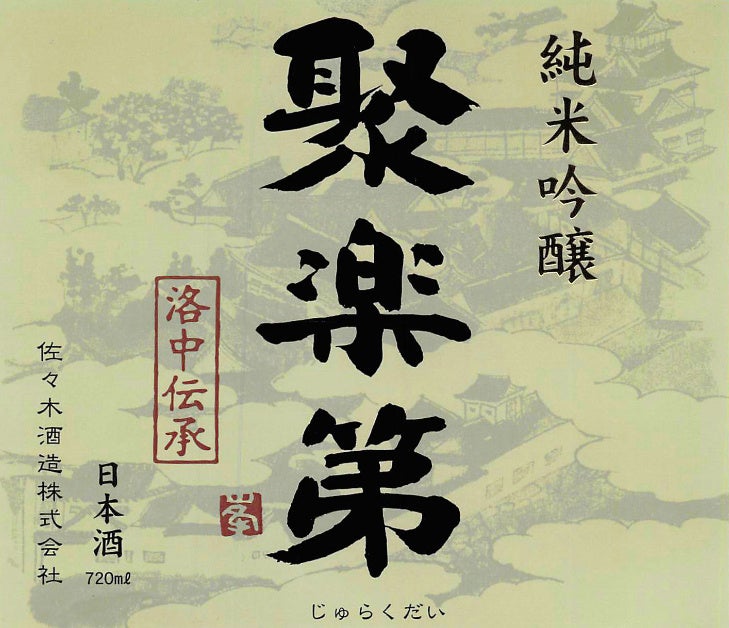 純米吟醸
聚楽第
じゅらくだい
洛中伝承
日本酒
720mℓ
佐々木酒造株式会社